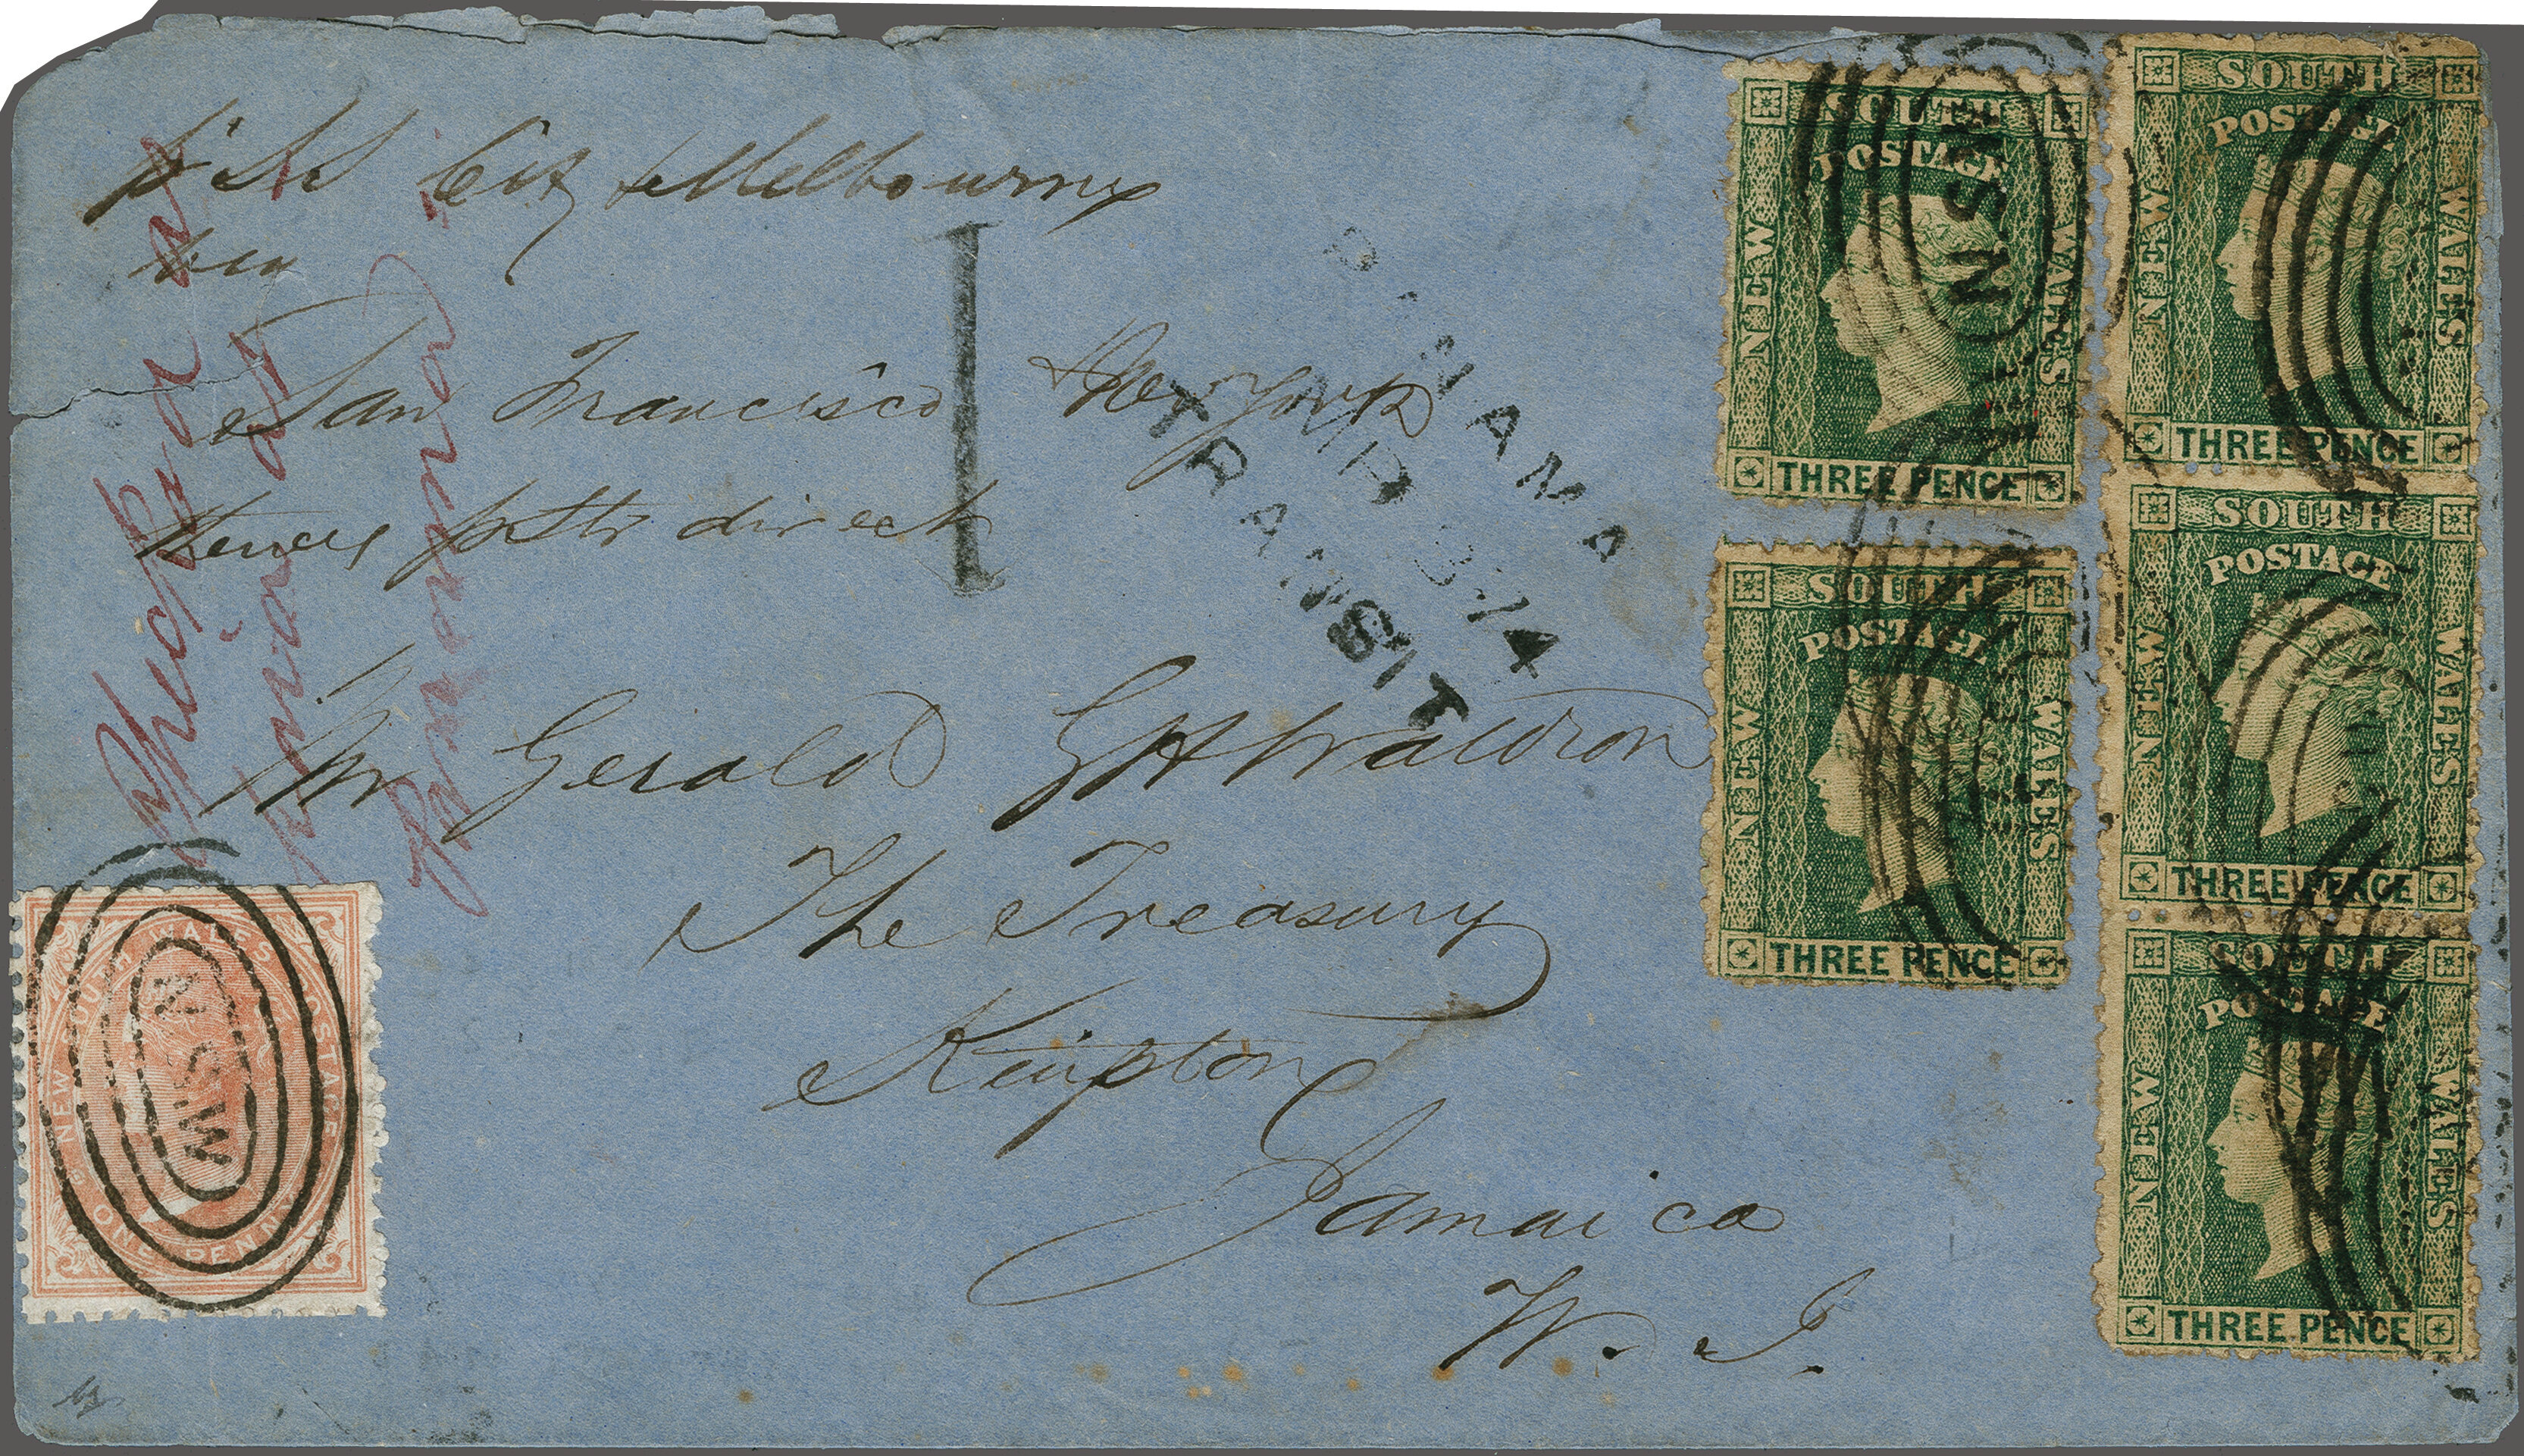 p SS City Melbourne
via
San Francisco & New York
thence pr Str direct
Mr Gerald G H Waldron
The Treasury
Kingston
Jamaica
W. I.
PANAMA
TRANSIT
SOUTH
POSTAGE
NEW
WALES
THREE PENCE
NSW
SOUTH
POSTAGE
NEW
WALES
THREE PENCE
SOUTH
POSTAGE
NEW
WALES
THREE PENCE
SOUTH
POSTAGE
NEW
WALES
THREE PENCE
SOUTH
POSTAGE
NEW
WALES
THREE PENCE
NEW SOUTH WALES POSTAGE
ONE PENNY
NSW
Panama